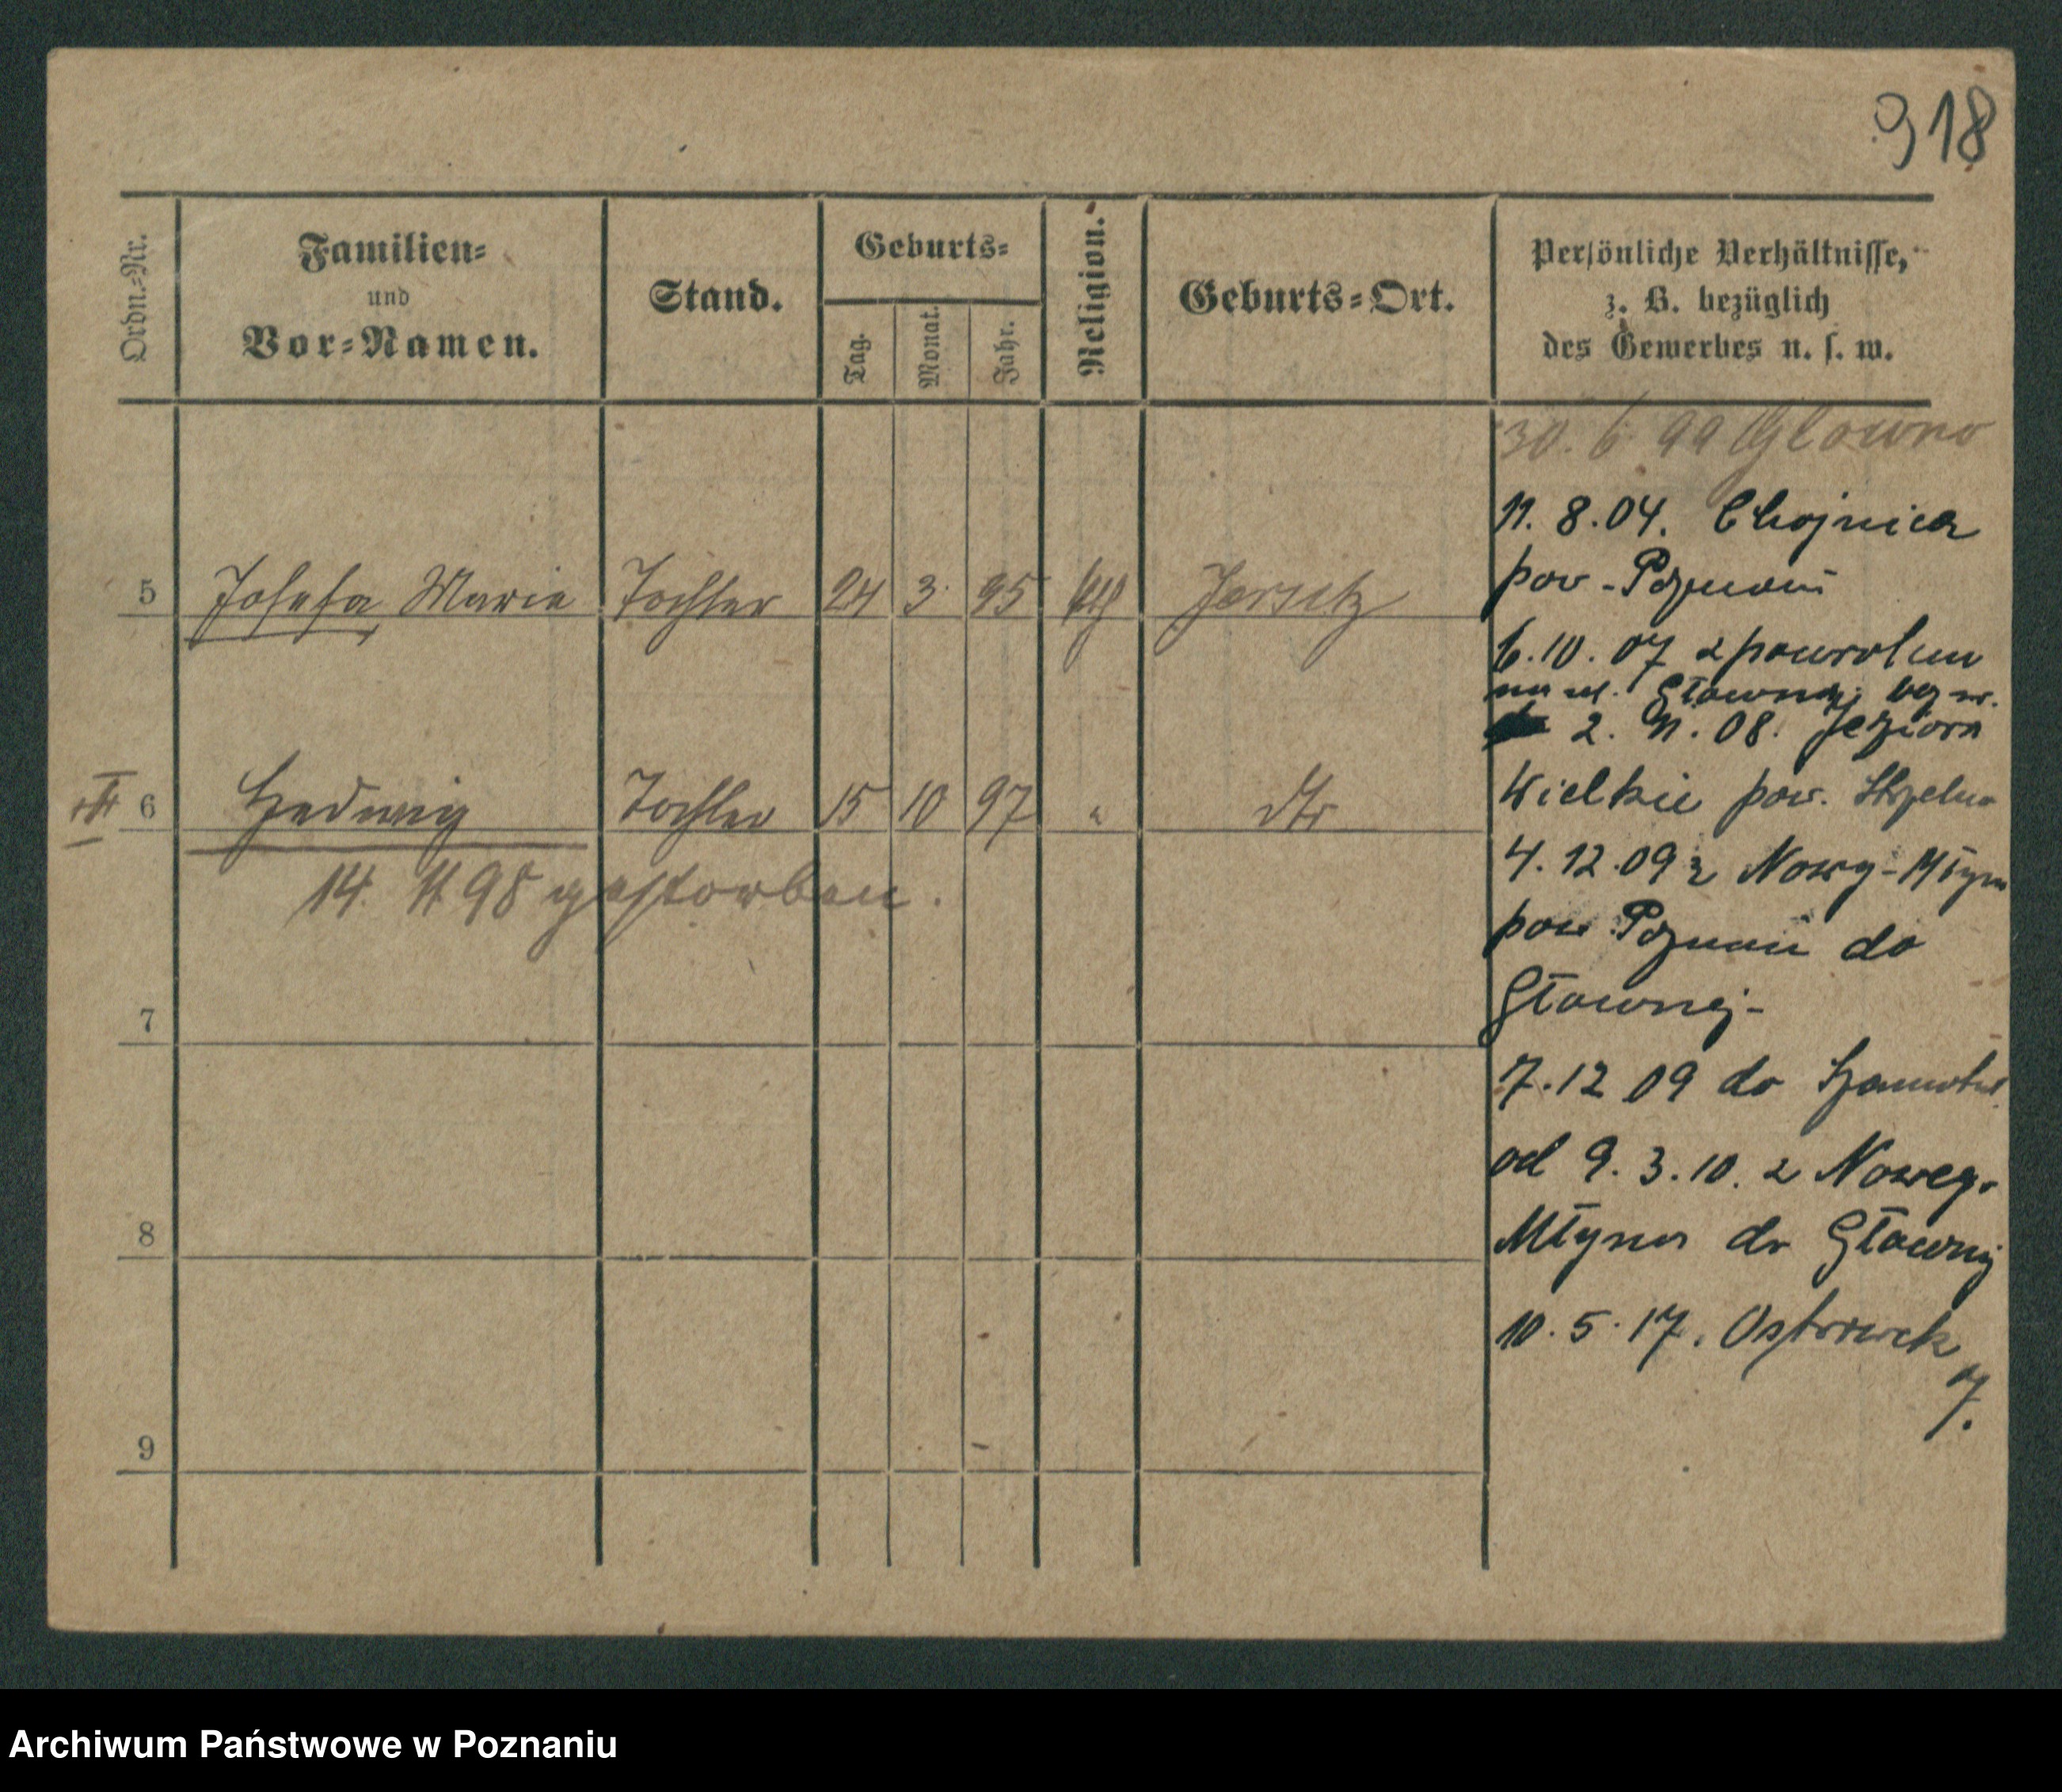 918
Ordn.-Nr.
Familien-
und
Vor-Namen.
Stand.
Geburts-
Tag.
Monat.
Jahr.
Religion.
Geburts-Ort.
Persönliche Verhältnisse,
z. B. bezüglich
des Gewerbes u. s. w.
30. 6 99 Glowno
11. 8. 04. Chojnica
pow - Poznań
5 Josefa Marie Tochter 24 3 95 kth Jersitz
6. 10. 07 z powrotem
na ul. Głównej
2. 11. 08. Jeziora
6 Hedwig Tochter 15 10 97 " dto
Wielkie pow.
14. 4 98 gestorben.
4. 12. 09 z Nowy-Młyn
pow Poznań do
Głównej-
7
7. 12 09 do
od 9. 3. 10. z Nowego
8
Młyna do Głównej
10. 5. 17. Ostrówek
7.
9
Archiwum Państwowe w Poznaniu